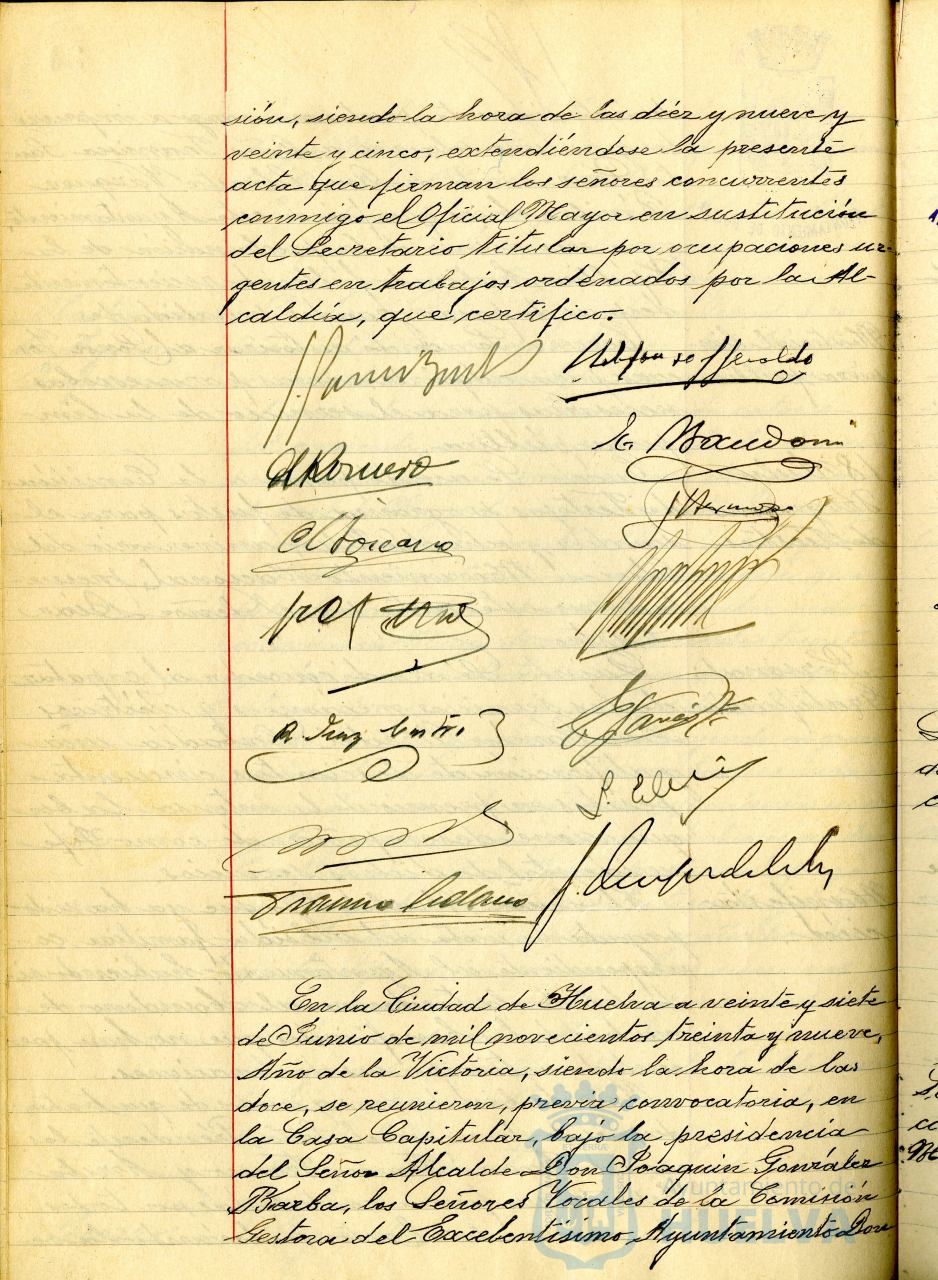 sión, siendo la hora de las diéz y nueve y
veinte y cinco, extendiéndose la presente
acta que firman los señores concurrentes
conmigo el Oficial Mayor en sustitución
del Secretario titular por ocupaciones ur-
gentes en trabajos ordenados por la Al-
caldía, que certifico.
Romero
R. Díaz
En la Ciudad de Huelva a veinte y siete
de Junio de mil novecientos treinta y nueve,
Año de la Victoria, siendo la hora de las
doce, se reunieron, previa convocatoria, en
la Casa Capitular, bajo la presidencia
del Señor Alcalde Don Joaquin González
Barba, los Señores Vocales de la Comisión
Gestora del Excelentísimo Ayuntamiento Don
Ayuntamiento de
HUELVA